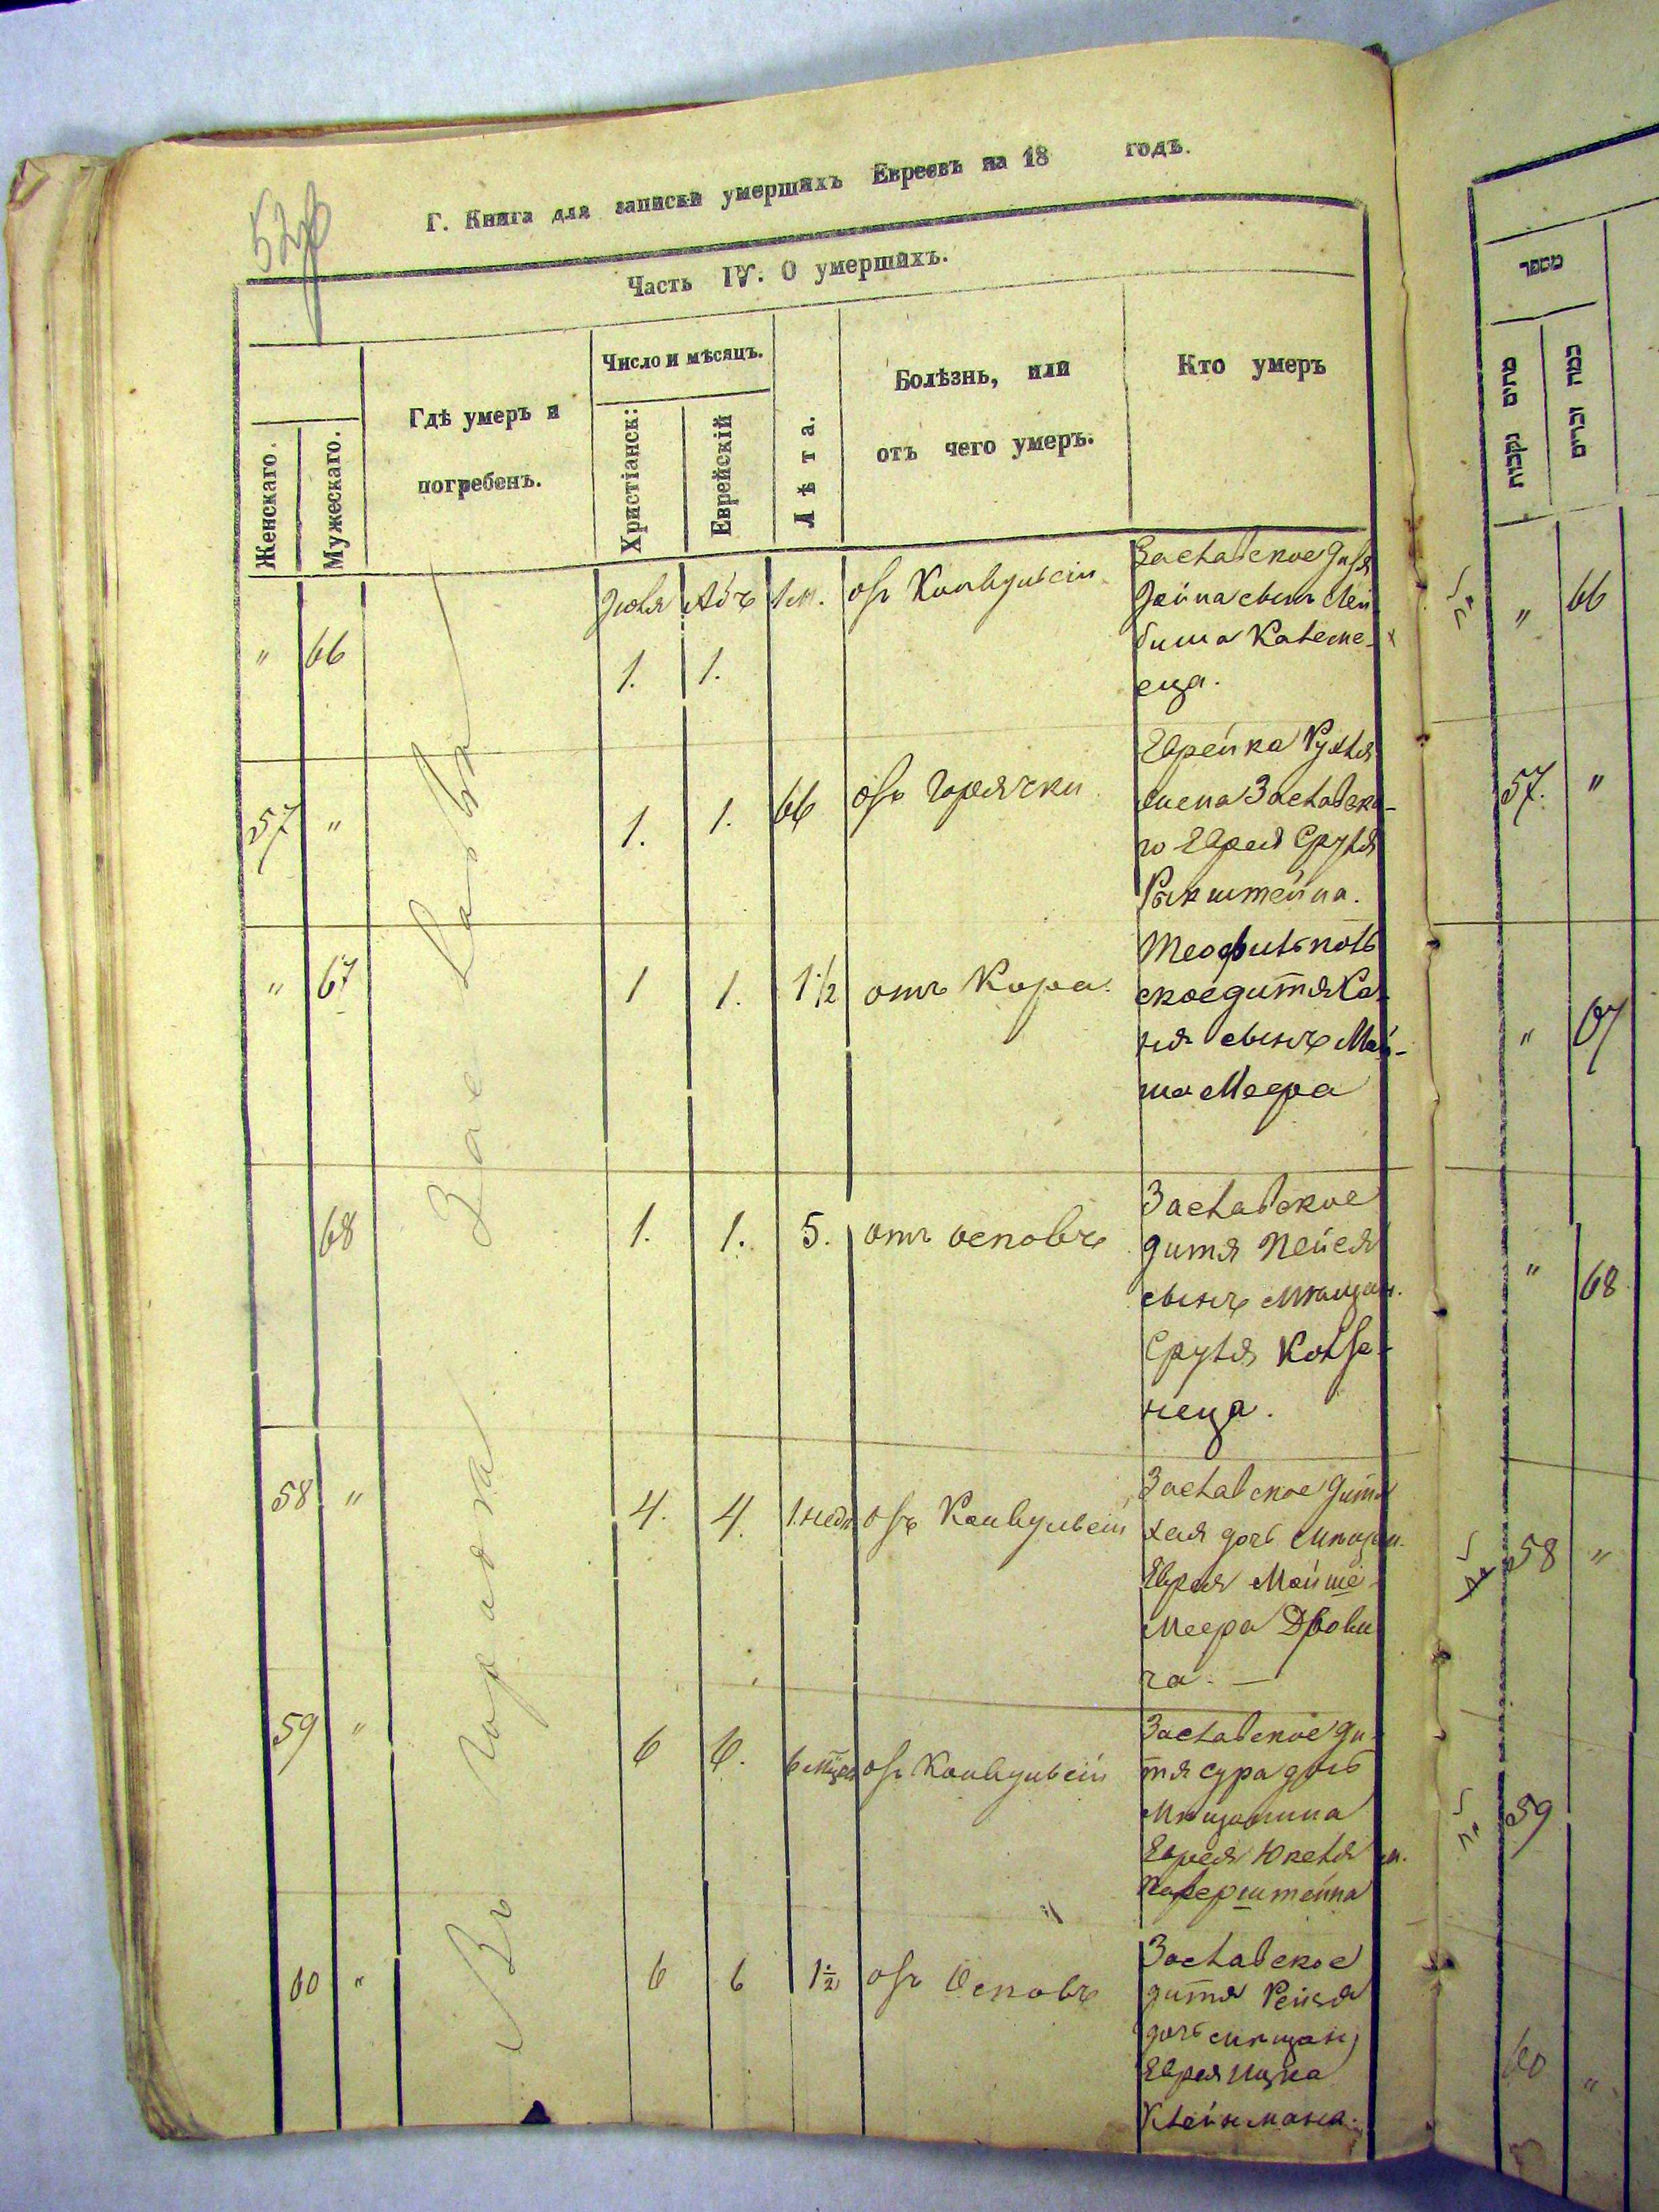 528
Г. Книга для записки умершихъ Евреевъ на 18 годъ.
Часть IV. О умершихъ.
Женскаго.
Мужескаго.
Гдѣ умеръ и
погребенъ.
Число и мѣсяцъ.
Христіанск:
Еврейскій
Лѣта.
Болѣзнь, или
отъ чего умеръ.
Кто умеръ
Въ городѣ Заславѣ
" 66
Іюля Авъ 1 м. отъ Конвульсіи
1. 1.
Заславское дитя
сынъ Лей
биша
еца.
57 " 1. 1. 66 отъ горячки
Еврейка Рухля
жена Заславска-
го Еврея Сруля
штейна.
" 67 1 1. 1½ отъ Кора.
Теофильполь
ское дитя
сынъ Мой-
ша Меера
68 1. 1. 5. отъ осповъ
Заславское
дитя Пейся
сынъ Мѣщан.
Сруля
неца.
58 " 4. 4. 1 недѣ отъ Конвульсіи
Заславское дитя
Хая дочь мѣщан.
Еврея Мойше-
Меера
ча. —
59 " 6 6. 6 мѣсяц отъ Конвульсіи
Заславское ди-
тя Сура дочь
Мѣщанина
Еврея Юкеля
штейна
60 " 6 6 1½ отъ Осповъ
Заславское
дитя Рейзя
дочь мѣщан.
Еврея Ицка
Клейнмана.
מספר
מתים נקבות
כמה זכרים
" 66
57. "
" 67
" 68
58 "
59
60 "